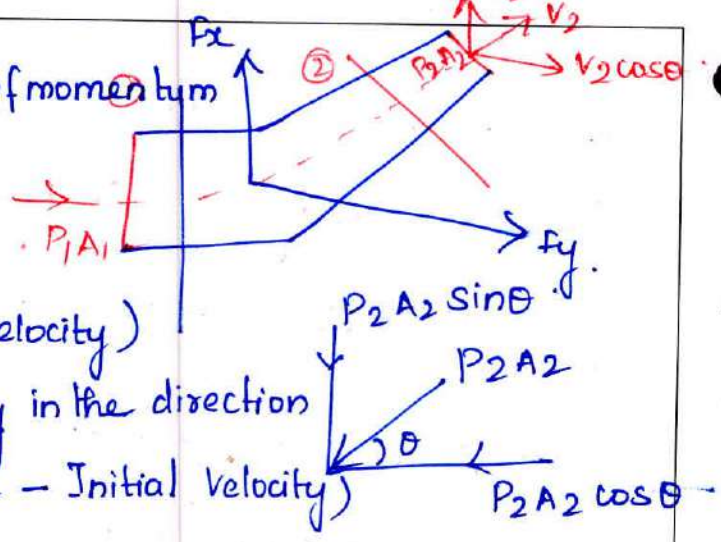 Fx
V2
②
P2A2
V2 cosθ
f momentum
①
P1A1
Fy.
P2 A2 sinθ.
elocity)
P2A2
in the direction
θ
- Initial velocity)
P2A2 cosθ